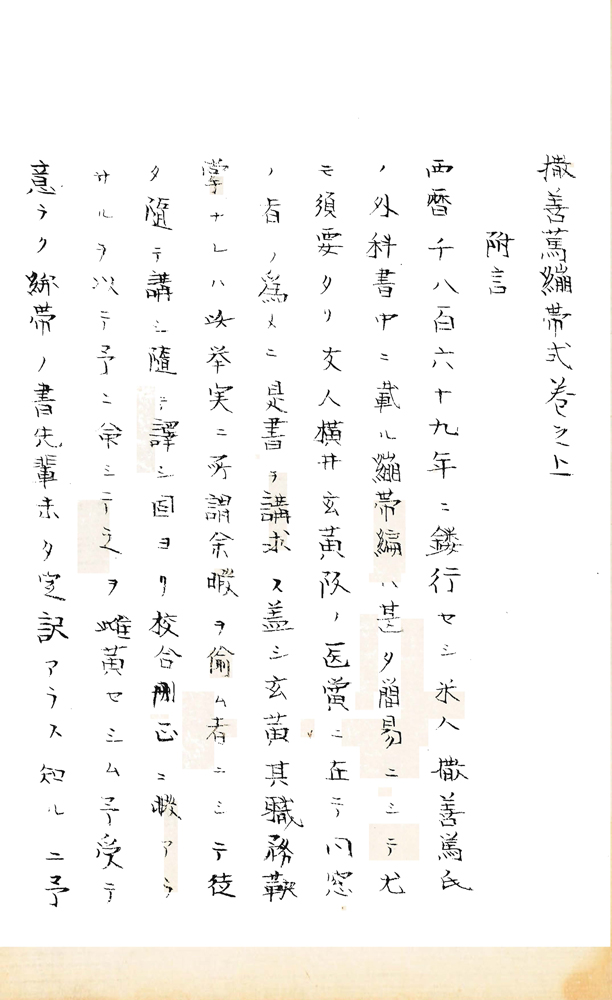 撒善篤繃帯式巻之上
附言
西暦千八百六十九年ニ鏤行セシ米人撒善篤氏
ノ外科書中ニ載ル繃帯編ハ甚タ簡易ニシテ尤
モ須要タリ友人横井玄黄阪ノ医黌ニ在テ同窓
ノ者ノ為メニ是書ヲ講求ス蓋シ玄黄其職務鞅
掌ナレハ此挙実ニ所謂余暇ヲ偷ム者ニシテ徒
タ随テ講シ随テ譯シ固ヨリ校合刪正ニ暇アラ
サルヲ以テ予ニ命シテ之ヲ雌黄セシム予受テ
意ラク繃帯ノ書先輩未タ定訳アラス知ルニ予